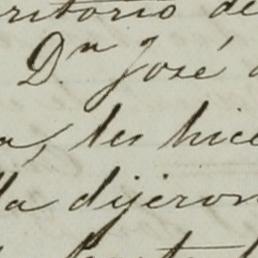 ritorio de
D.n José
a, les hice
la dijeron